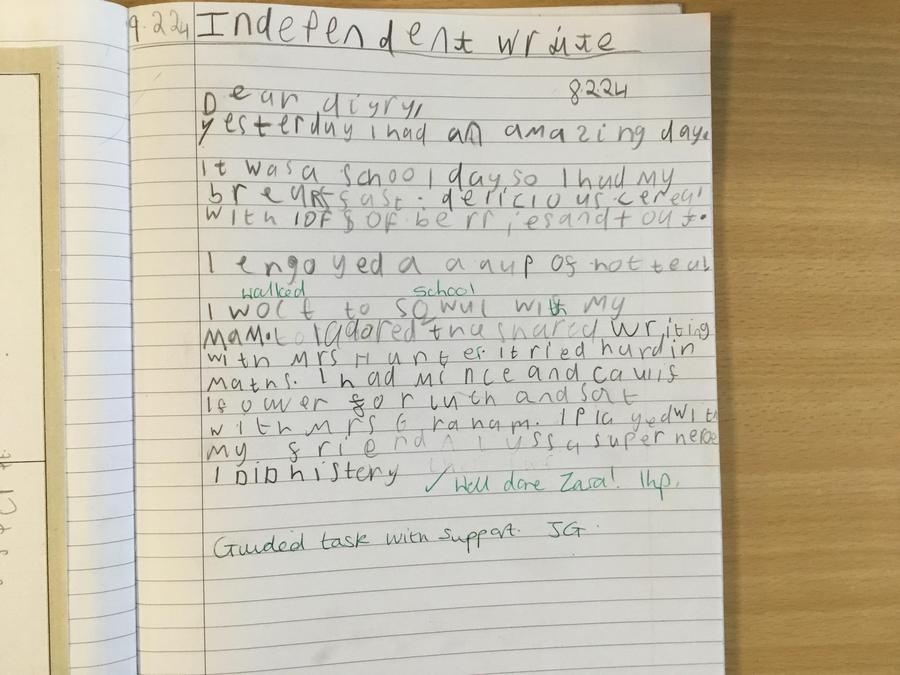 9.2.24 Independent write
8.2.24
Dear diyry,
yesterday I had an amazing day.
it was a school day so I had my
breakfast. dericious cereal
with lOF s OF berries and tout.
I engoyed a a aup OF hot teal
walked school
I wolt to sowul with my
mam. I adored the shared writing
with Mrs Hunter. I tried hard in
maths. I had mince and caulis
lf ower for luth and sat
with Mrs Graham. I playedwith
my friend
I DID history
✓ Well done Zara! 1hp.
Guided task with support. JG.